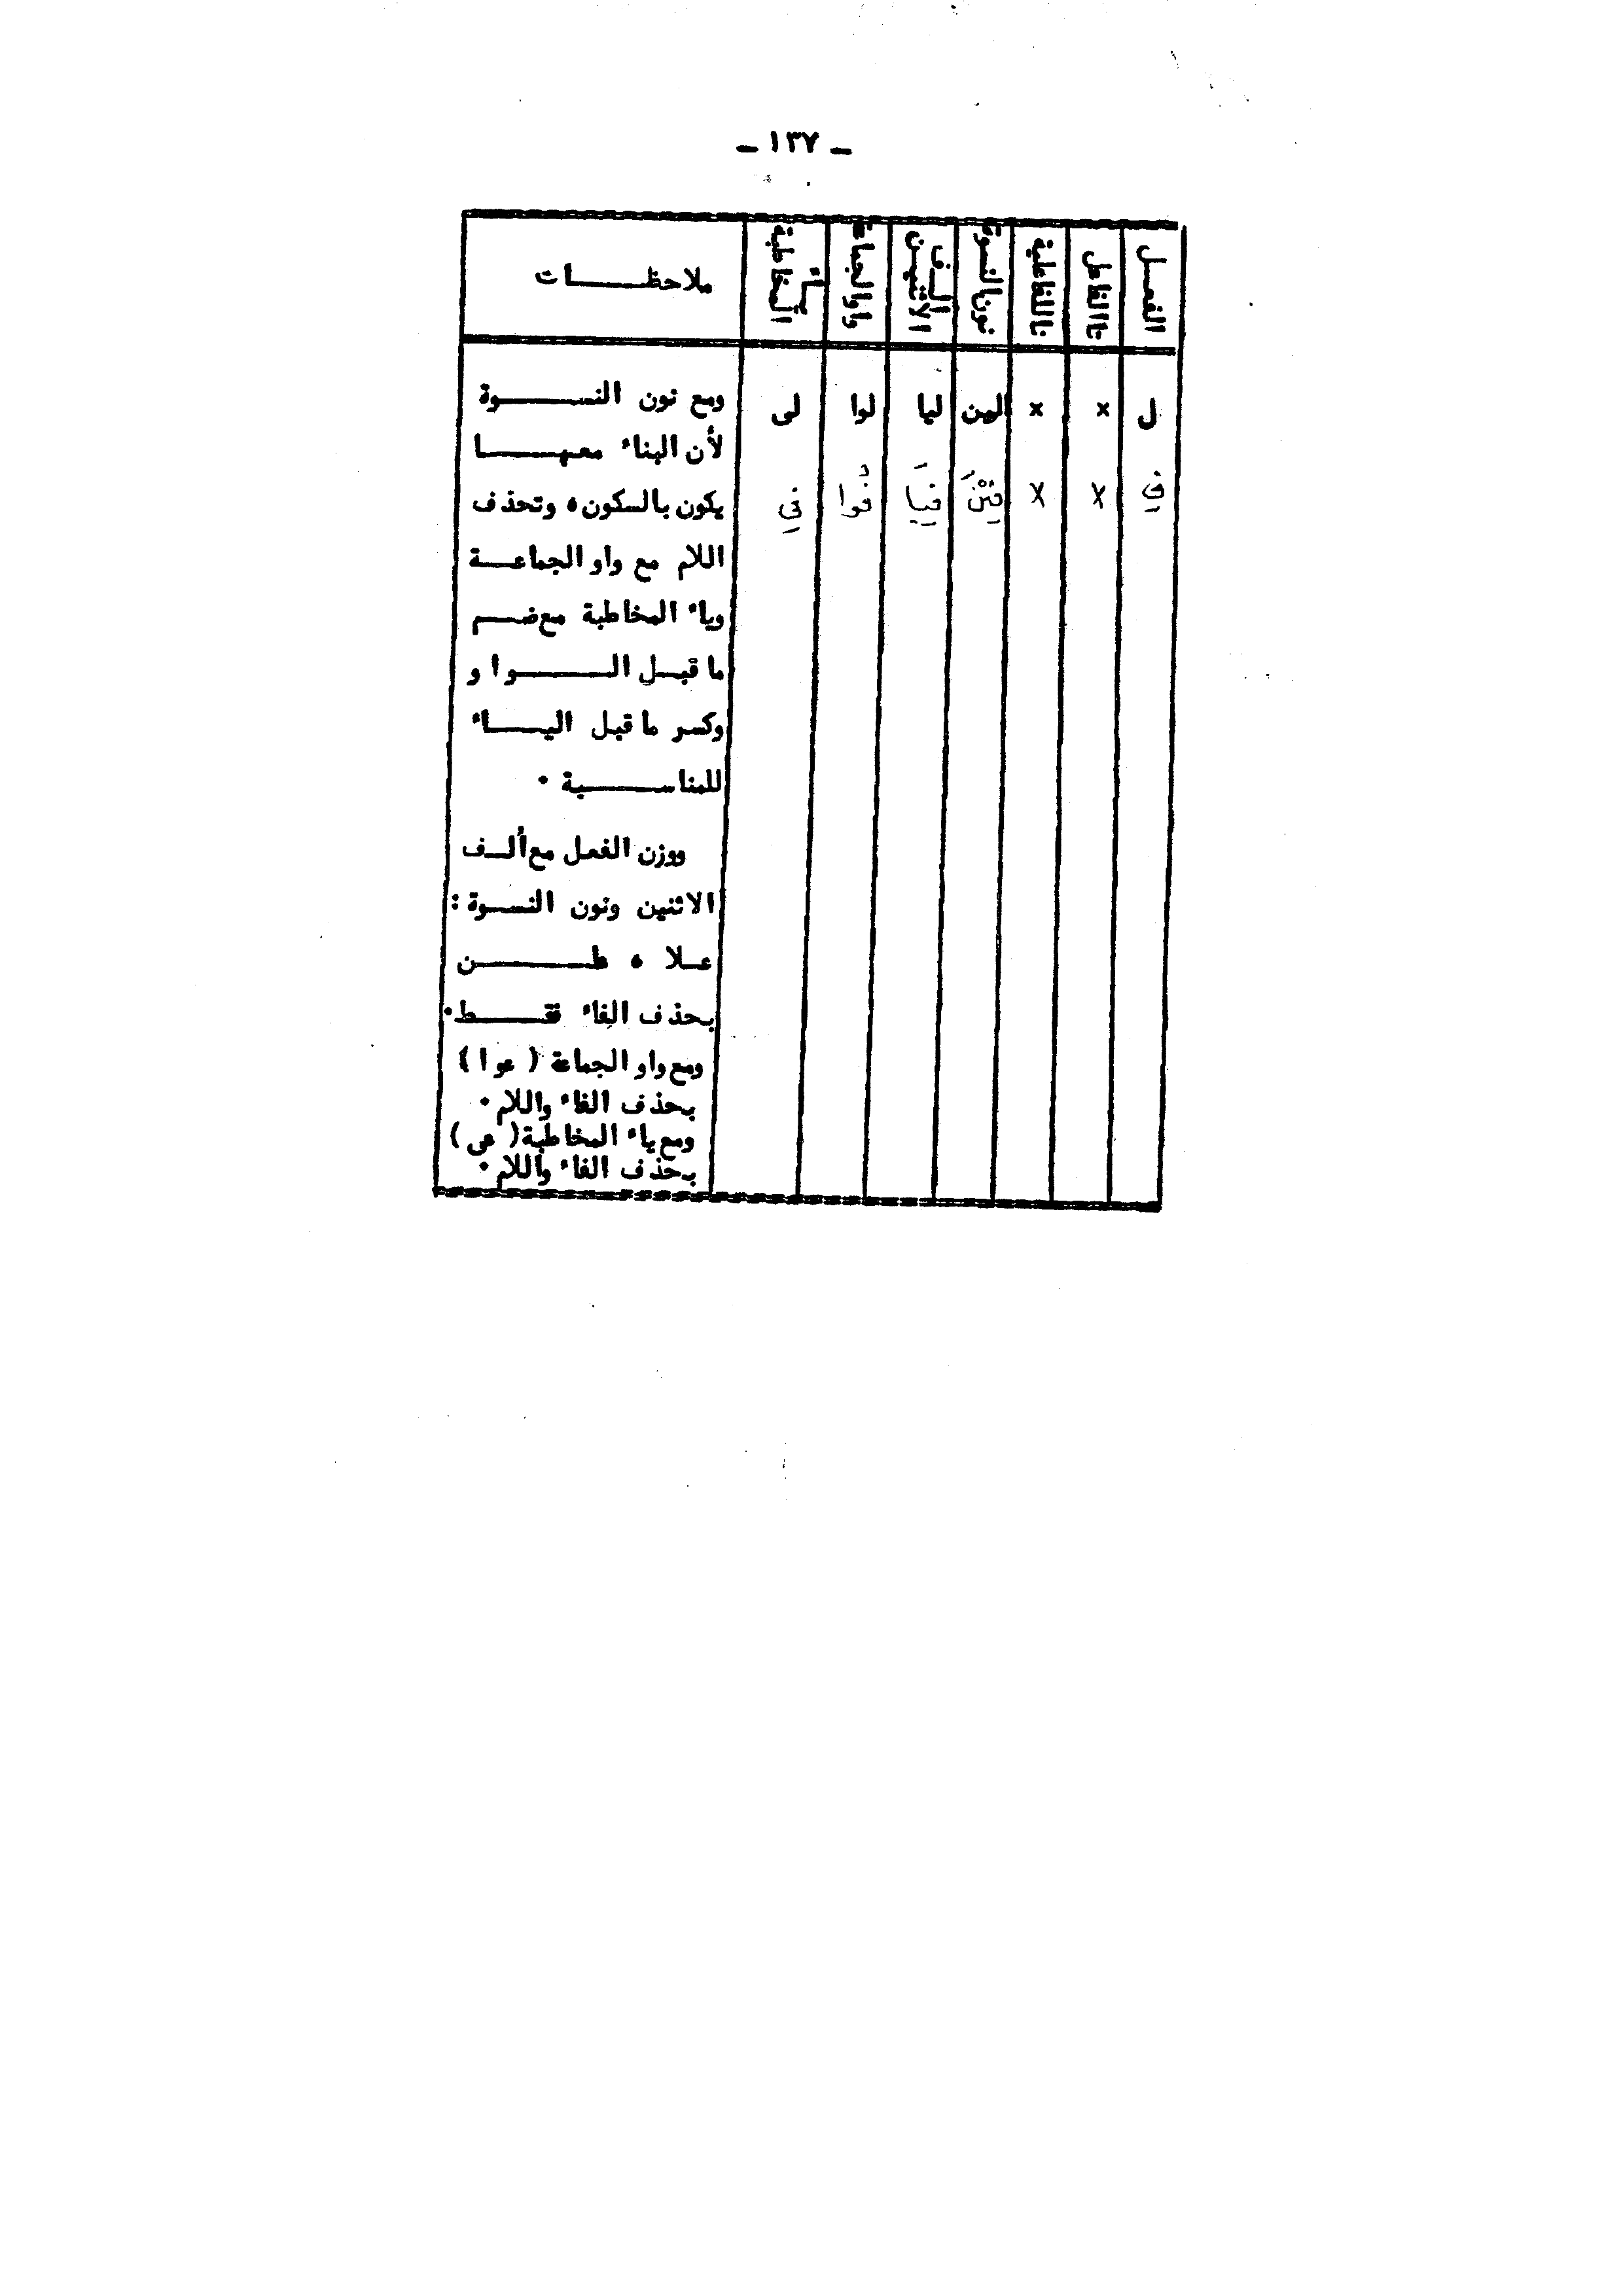 ـ ١٣٧ ـ
الفعل | تا الفاعل | نا للفاعلين | نون النسوة | ألف الاثنين | واو الجماعة | ياء المخاطبة | ملاحظات
ل | × | × | لين | ليا | لوا | لى
فِ | × | × | فِيْنَ | فِيَا | فُوا | فِي
ومع نون النسوة
لأن البناء معها
يكون بالسكون، وتحذف
اللام مع واو الجماعة
وياء المخاطبة مع ضم
ما قبل الواو
وكسر ما قبل الياء
للمناسبة ٠
ووزن الفعل مع ألف
الاثنين ونون النسوة :
علا ، علن
بحذف الفاء فقط ٠
ومع واو الجماعة ( عوا )
بحذف الفاء واللام ٠
ومع ياء المخاطبة ( عى )
بحذف الفاء واللام ٠